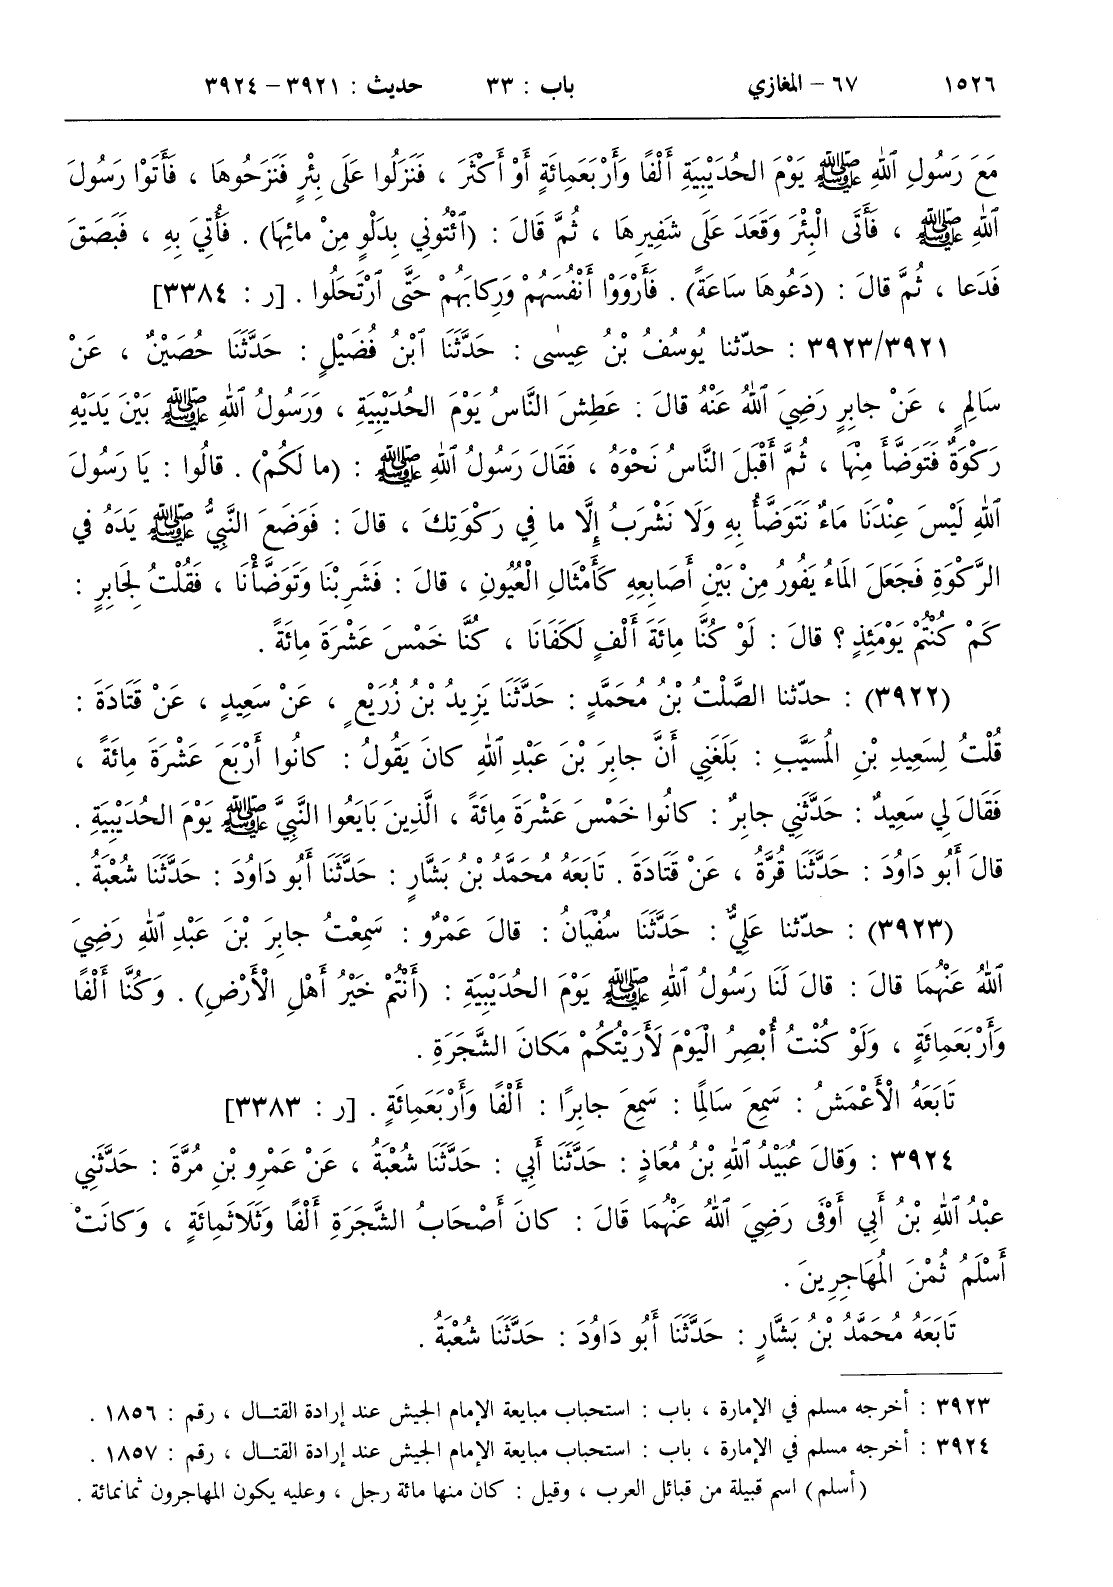 ١٥٢٦ ٦٧ - المغازي باب : ٣٣ حديث : ٣٩٢١ - ٣٩٢٤
مَعَ رَسُولِ ٱللهِ ﷺ يَوْمَ الحُدَيْبِيَةِ أَلْفًا وَأَرْبَعَمِائَةٍ أَوْ أَكْثَرَ ، فَنَزَلُوا عَلَى بِئْرٍ فَنَزَحُوهَا ، فَأَتَوْا رَسُولَ
ٱللهِ ﷺ ، فَأَتَى الْبِئْرَ وَقَعَدَ عَلَى شَفِيرِهَا ، ثُمَّ قَالَ : (ٱئْتُونِي بِدَلْوٍ مِنْ مائِهَا) . فَأُتِيَ بِهِ ، فَبَصَقَ
فَدَعا ، ثُمَّ قالَ : (دَعُوهَا سَاعَةً) . فَأَرْوَوْا أَنْفُسَهُمْ وَرِكابَهُمْ حَتَّى ٱرْتَحَلُوا . [ر : ٣٣٨٤]
٣٩٢٣/٣٩٢١ : حدّثنا يُوسُفُ بْنُ عِيسٰى : حَدَّثَنَا ٱبْنُ فُضَيْلٍ : حَدَّثَنَا حُصَيْنٌ ، عَنْ
سَالِمٍ ، عَنْ جابِرٍ رَضِيَ ٱللهُ عَنْهُ قالَ : عَطِشَ النَّاسُ يَوْمَ الحُدَيْبِيَةِ ، وَرَسُولُ ٱللهِ ﷺ بَيْنَ يَدَيْهِ
رَكْوَةٌ فَتَوَضَّأَ مِنْهَا ، ثُمَّ أَقْبَلَ النَّاسُ نَحْوَهُ ، فَقَالَ رَسُولُ ٱللهِ ﷺ : (ما لَكُمْ) . قالُوا : يَا رَسُولَ
ٱللهِ لَيْسَ عِنْدَنَا مَاءٌ نَتَوَضَّأُ بِهِ وَلَا نَشْرَبُ إِلَّا ما فِي رَكْوَتِكَ ، قالَ : فَوَضَعَ النَّبِيُّ ﷺ يَدَهُ فِي
الرَّكْوَةِ فَجَعَلَ المَاءُ يَفُورُ مِنْ بَيْنِ أَصَابِعِهِ كَأَمْثَالِ الْعُيُونِ ، قالَ : فَشَرِبْنَا وَتَوَضَّأْنَا ، فَقُلْتُ لِجَابِرٍ :
كَمْ كُنْتُمْ يَوْمَئِذٍ ؟ قالَ : لَوْ كُنَّا مِائَةَ أَلْفٍ لَكَفَانَا ، كُنَّا خَمْسَ عَشْرَةَ مِائَةً .
(٣٩٢٢) : حدّثنا الصَّلْتُ بْنُ مُحَمَّدٍ : حَدَّثَنَا يَزِيدُ بْنُ زُرَيْعٍ ، عَنْ سَعِيدٍ ، عَنْ قَتَادَةَ :
قُلْتُ لِسَعِيدِ بْنِ المُسَيَّبِ : بَلَغَنِي أَنَّ جابِرَ بْنَ عَبْدِ ٱللهِ كانَ يَقُولُ : كانُوا أَرْبَعَ عَشْرَةَ مِائَةً ،
فَقَالَ لِي سَعِيدٌ : حَدَّثَنِي جابِرٌ : كانُوا خَمْسَ عَشْرَةَ مِائَةً ، الَّذِينَ بَايَعُوا النَّبِيَّ ﷺ يَوْمَ الحُدَيْبِيَةِ .
قالَ أَبُو دَاوُدَ : حَدَّثَنَا قُرَّةُ ، عَنْ قَتَادَةَ . تَابَعَهُ مُحَمَّدُ بْنُ بَشَّارٍ : حَدَّثَنَا أَبُو دَاوُدَ : حَدَّثَنَا شُعْبَةُ .
(٣٩٢٣) : حدّثنا عَلِيٌّ : حَدَّثَنَا سُفْيَانُ : قالَ عَمْرٌو : سَمِعْتُ جابِرَ بْنَ عَبْدِ ٱللهِ رَضِيَ
ٱللهُ عَنْهُمَا قالَ : قالَ لَنَا رَسُولُ ٱللهِ ﷺ يَوْمَ الحُدَيْبِيَةِ : (أَنْتُمْ خَيْرُ أَهْلِ الْأَرْضِ) . وَكُنَّا أَلْفًا
وَأَرْبَعَمِائَةٍ ، وَلَوْ كُنْتُ أُبْصِرُ الْيَوْمَ لَأَرَيْتُكُمْ مَكانَ الشَّجَرَةِ .
تَابَعَهُ الْأَعْمَشُ : سَمِعَ سَالِمًا : سَمِعَ جابِرًا : أَلْفًا وَأَرْبَعَمِائَةٍ . [ر : ٣٣٨٣]
٣٩٢٤ : وَقالَ عُبَيْدُ ٱللهِ بْنُ مُعَاذٍ : حَدَّثَنَا أَبِي : حَدَّثَنَا شُعْبَةُ ، عَنْ عَمْرِو بْنِ مُرَّةَ : حَدَّثَنِي
عَبْدُ ٱللهِ بْنُ أَبِي أَوْفَى رَضِيَ ٱللهُ عَنْهُمَا قالَ : كانَ أَصْحَابُ الشَّجَرَةِ أَلْفًا وَثَلَاثَمِائَةٍ ، وَكانَتْ
أَسْلَمُ ثُمْنَ المُهَاجِرِينَ .
تَابَعَهُ مُحَمَّدُ بْنُ بَشَّارٍ : حَدَّثَنَا أَبُو دَاوُدَ : حَدَّثَنَا شُعْبَةُ .
٣٩٢٣ : أخرجه مسلم في الإمارة ، باب : استحباب مبايعة الإمام الجيش عند إرادة القتـال ، رقم : ١٨٥٦ .
٣٩٢٤ : أخرجه مسلم في الإمارة ، باب : استحباب مبايعة الإمام الجيش عند إرادة القتـال ، رقم : ١٨٥٧ .
(أسلم) اسم قبيلة من قبائل العرب ، وقيل : كان منها مائة رجل ، وعليه يكون المهاجرون ثمانمائة .